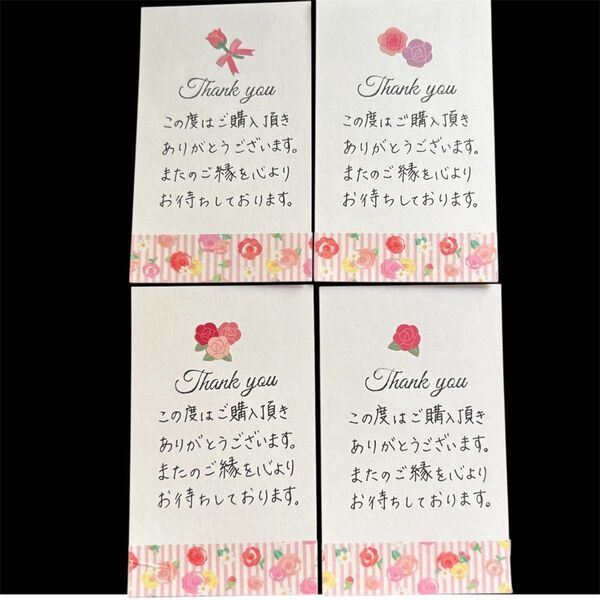 Thank you
この度はご購入頂き
ありがとうございます。
またのご縁を心より
お待ちしております。
Thank you
この度はご購入頂き
ありがとうございます。
またのご縁を心より
お待ちしております。
Thank you
この度はご購入頂き
ありがとうございます。
またのご縁を心より
お待ちしております。
Thank you
この度はご購入頂き
ありがとうございます。
またのご縁を心より
お待ちしております。